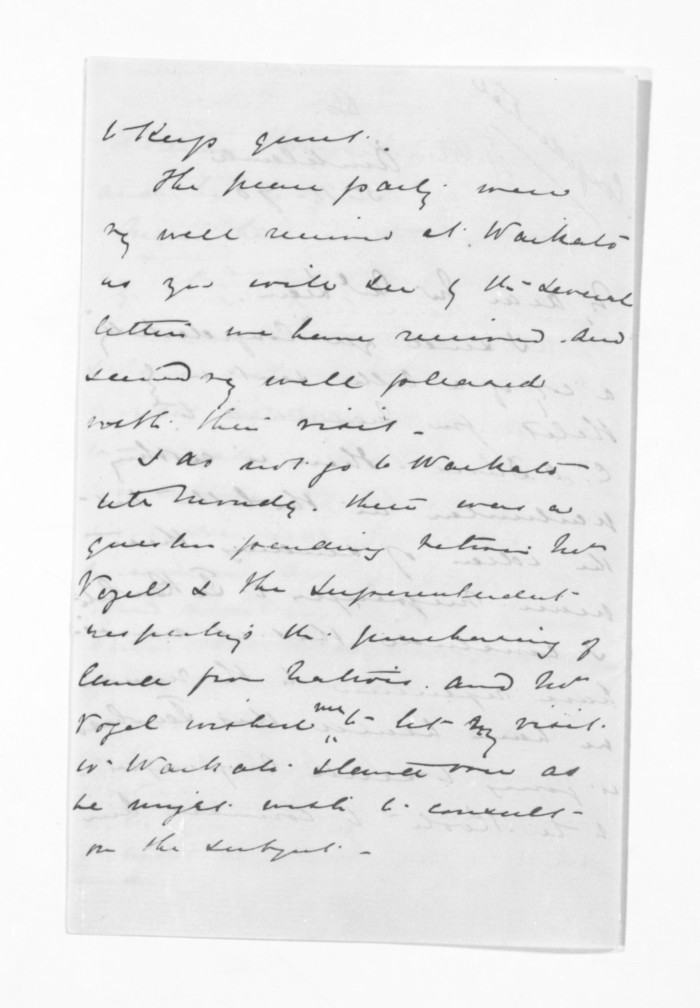 to Keep quiet.
The peace party were
very well received at Waikato
as you will see by the several
letters we have received and
seemed very well pleased
with their visit -
I do not go to Waikato
until Monday. there was a
question pending between Mr
Vogel & the Superintendent
respecting the purchasing of
lands from Natives. and Mr
Vogel wished me to let my visit
to Waikato stand over as
he might wish to consult
on the subject. -